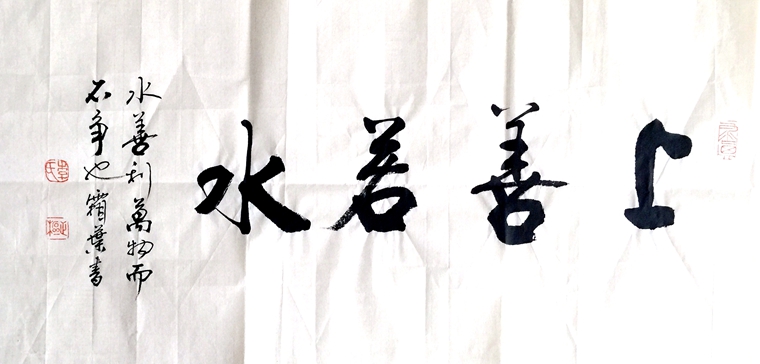 上善若水
水善利萬物而
不争也霜葉書